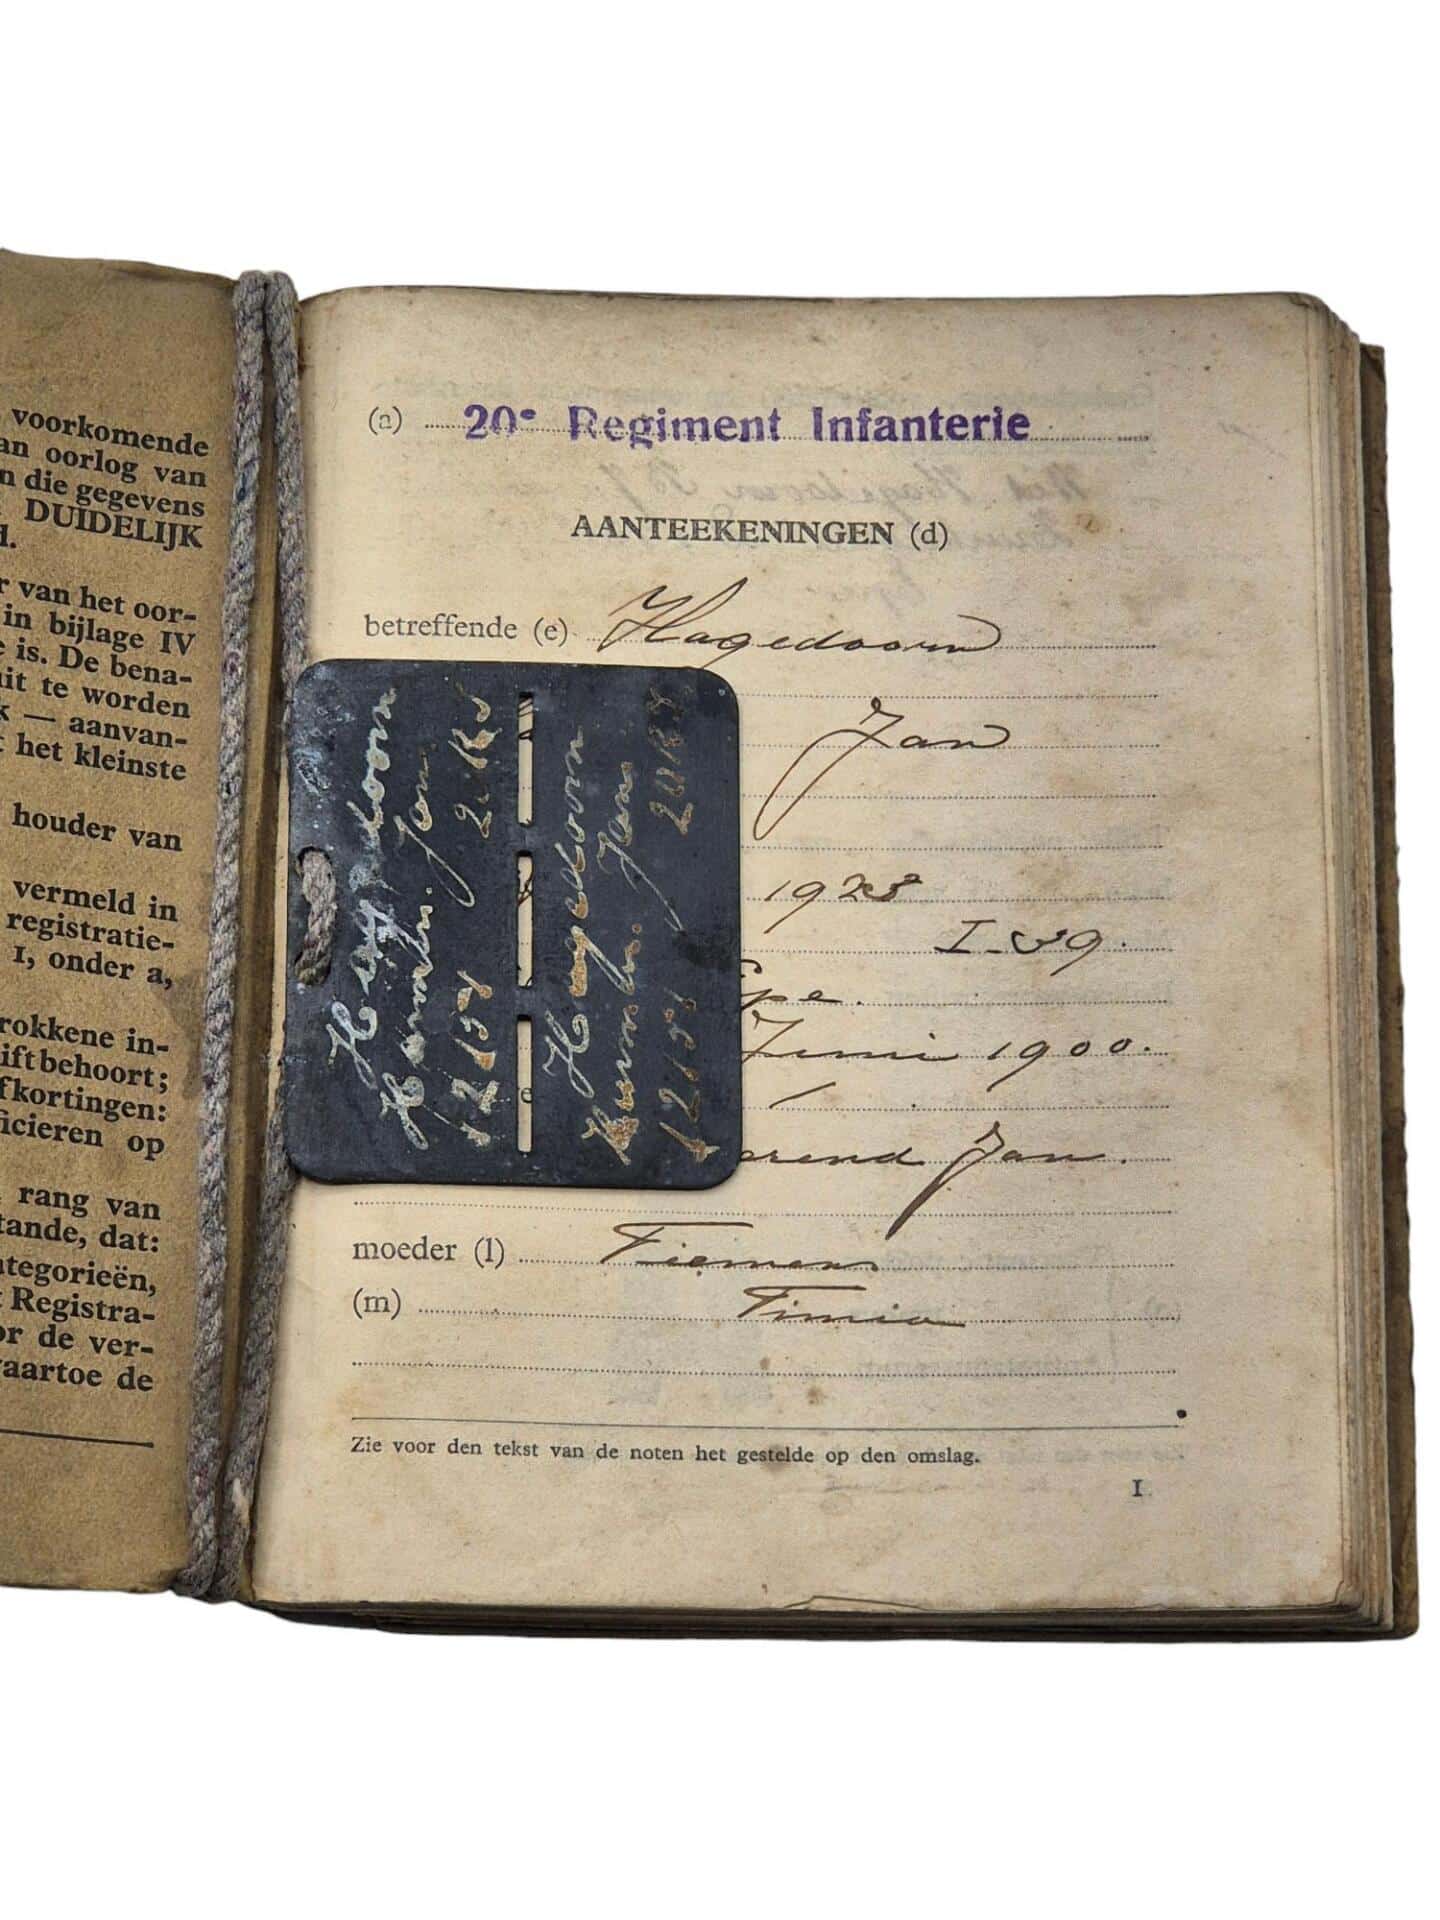 voorkomende
an oorlog van
n die gegevens
DUIDELIJK
d.
r van het oor-
in bijlage IV
e is. De bena-
uit te worden
k — aanvan-
t het kleinste
houder van
vermeld in
registratie-
1, onder a,
rokkene in-
ift behoort;
fkortingen:
ficieren op
rang van
tande, dat:
ategorieën,
t Registra-
or de ver-
vaartoe de
(a) 20e Regiment Infanterie
AANTEEKENINGEN (d)
betreffende (e) Hagedoorn
Jan
1928
I-39.
Epe.
Juni 1900.
/
erend Jan.
moeder (l) Tiemens
(m) Timia
Zie voor den tekst van de noten het gestelde op den omslag.
1
Hagedoorn
Jan
Hagedoorn
Jan